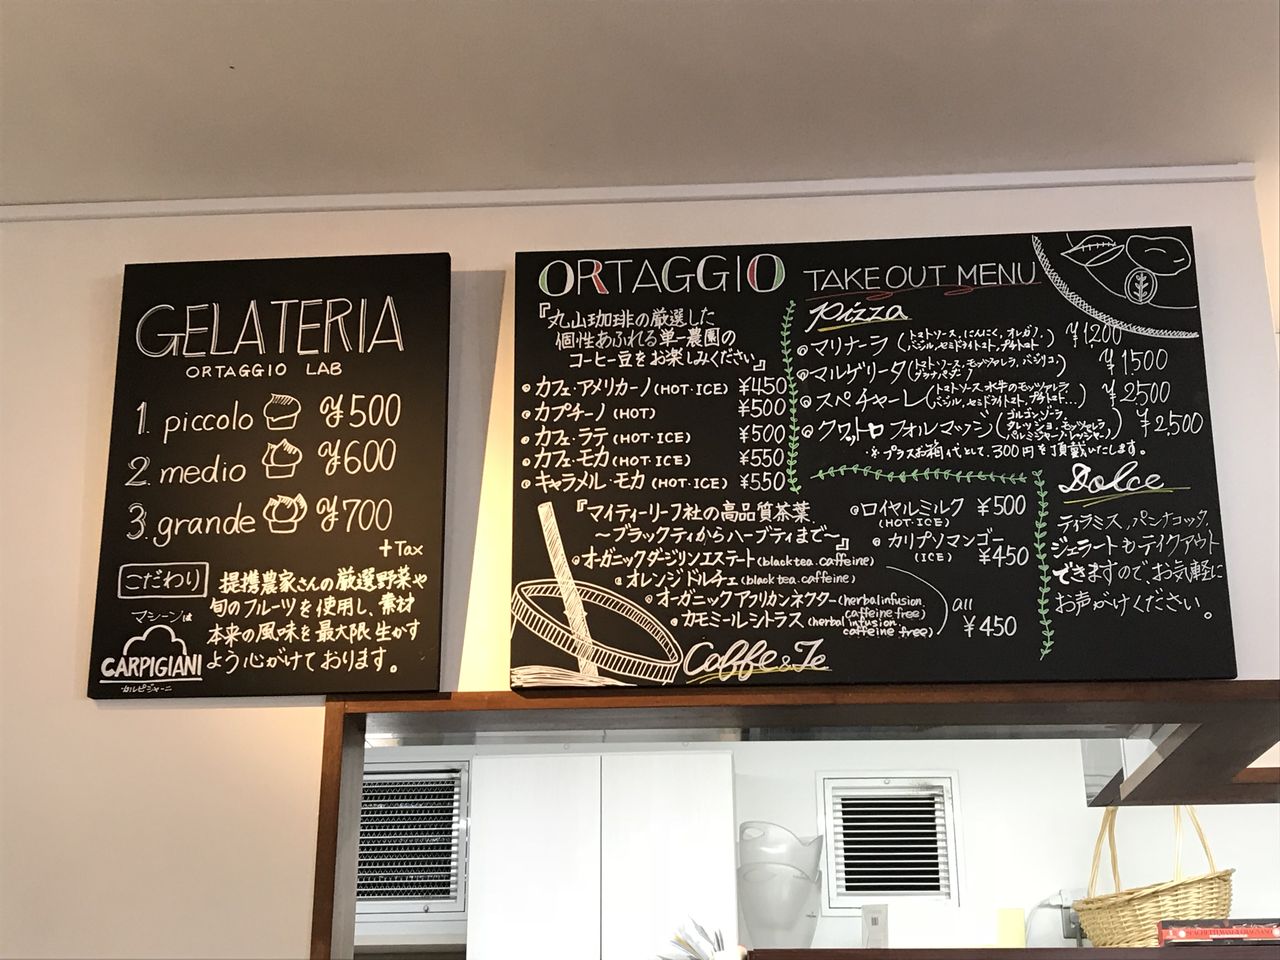 GELATERIA
ORTAGGIO LAB
1. piccolo ¥500
2. medio ¥600
3. grande ¥700
+Tax
こだわり
提携農家さんの厳選野菜や
旬のフルーツを使用し、素材
本来の風味を最大限生かす
よう心がけております。
マシーンは
CARPIGIANI
カルピジャーニ
ORTAGGIO
『丸山珈琲の厳選した
個性あふれる単一農園の
コーヒー豆をお楽しみください』
カフェ・アメリカーノ (HOT・ICE) ¥450
カプチーノ (HOT) ¥500
カフェ・ラテ (HOT・ICE) ¥500
カフェ・モカ (HOT・ICE) ¥550
キャラメル・モカ (HOT・ICE) ¥550
『マイティーリーフ社の高品質茶葉
～ブラックティからハーブティまで～』
オーガニックダージリンエステート (black tea. caffeine)
オレンジドルチェ (black tea. caffeine)
オーガニックアフリカンネクター (herbal infusion. caffeine free)
カモミールシトラス (herbal infusion. caffeine free)
all
¥450
ロイヤルミルク ¥500
(HOT・ICE)
カリプソマンゴー
(ICE) ¥450
Caffe & Te
TAKE OUT MENU
Pizza
マリナーラ (トマトソース、にんにく、オレガノ、バジル、セミドライトマト、プチトマト) ¥1200
マルゲリータ (トマトソース、モッツァレラ、バジリコ、グラナパダーノ) ¥1500
スペチャーレ (トマトソース 水牛のモッツァレラ バジル、セミドライトマト、プチトマト…) ¥2,500
クワットロ フォルマッジ (ゴルゴンゾーラ タレッジョ、モッツァレラ パルミジャーノ・レッジャーノ) ¥2,500
※プラスお箱代として、300円を頂戴いたします。
Dolce
ティラミス、パンナコッタ、
ジェラートもテイクアウト
できますので、お気軽に
お声がけください。